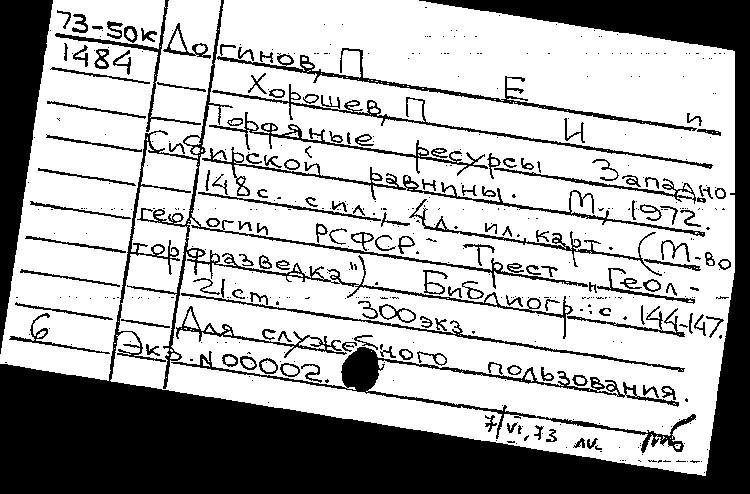 73-50к Логинов, П Е и
1484 Хорошев, П И
Торфяные ресурсы Западно-
Сибирской равнины. М., 1972.
148с. с ил.; 4л. ил., карт. (М-во
геологии РСФСР. Трест „Геол-
торфразведка"). Библиогр.: с. 144-147.
21ст. 300экз.
Для служебного пользования.
6 Экз. N 00002.
7/VI, 73